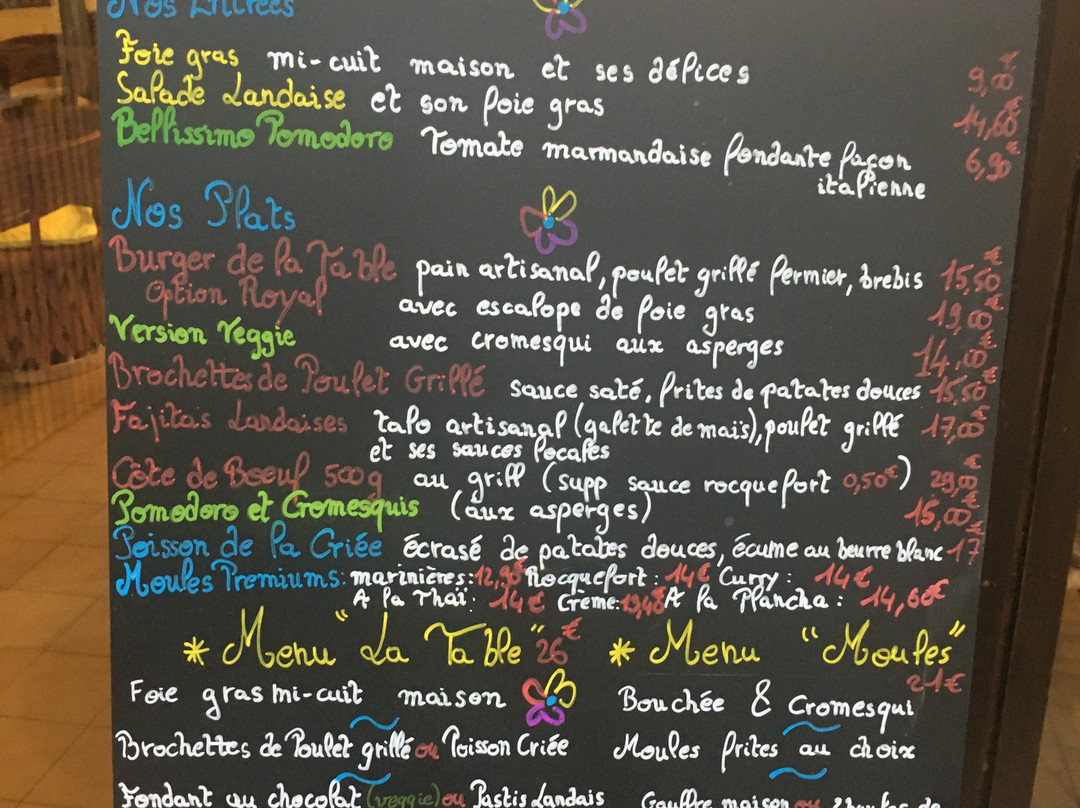 Nos Entrées
Foie gras mi-cuit maison et ses délices 9,00€
Salade Landaise et son foie gras 14,60€
Bellissimo Pomodoro Tomate marmandaise fondante façon 6,90€
italienne
Nos Plats
Burger de la Table pain artisanal, poulet grillé fermier, brebis 15,50€
Option Royal avec escalope de foie gras 19,00€
Version Veggie avec cromesqui aux asperges 14,00€
Brochettes de Poulet Grillé sauce saté, frites de patates douces 15,50€
Fajitas Landaises talo artisanal (galette de maïs), poulet grillé 17,00€
et ses sauces locales
Côte de Boeuf 500g au grill (supp sauce rocquefort 0,50€) 29,00€
Pomodoro et Cromesquis (aux asperges) 15,00€
Poisson de la Criée écrasé de patates douces, écume au beurre blanc 17€
Moules Premiums: marinières: 12,90€ Rocquefort: 14€ Curry: 14€
A la Thaï: 14€ Crème: 13,40€ A la Plancha: 14,60€
* Menu "La Table" 26€ * Menu "Moules"
21€
Foie gras mi-cuit maison Bouchée & Cromesqui
Brochettes de Poulet grillé ou Poisson Criée Moules frites au choix
Fondant au chocolat (veggie) ou Pastis Landais Gauffre maison ou